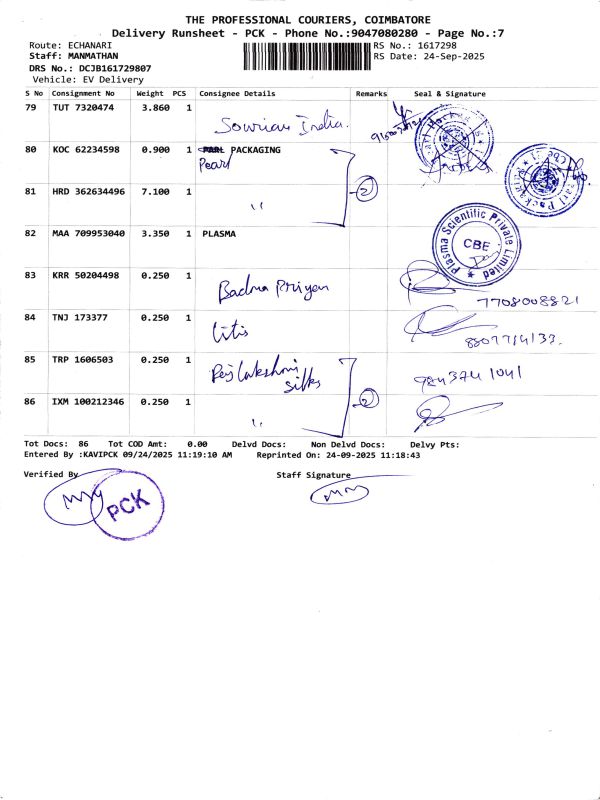 THE PROFESSIONAL COURIERS, COIMBATORE
Delivery Runsheet - PCK - Phone No.:9047080280 - Page No.:7
Route: ECHANARI
RS No.: 1617298
Staff: MANMATHAN
RS Date: 24-Sep-2025
DRS No.: DCJB161729807
Vehicle: EV Delivery
S No Consignment No Weight PCS Consignee Details Remarks Seal & Signature
79 TUT 7320474 3.860 1 India.
80 KOC 62234598 0.900 1 PACKAGING
Pearl
81 HRD 362634496 7.100 1 " 2
82 MAA 709953040 3.350 1 PLASMA
Plasma Scientific Private Limited
CBE
83 KRR 50204498 0.250 1 Badma Priyan
7708008821
84 TNJ 173377 0.250 1 Litis
85 TRP 1606503 0.250 1 Raj Lakshmi
Silks
9843741041
86 IXM 100212346 0.250 1 " 2
Tot Docs: 86 Tot COD Amt: 0.00 Delvd Docs: Non Delvd Docs: Delvy Pts:
Entered By :KAVIPCK 09/24/2025 11:19:10 AM Reprinted On: 24-09-2025 11:18:43
Verified By
Staff Signature
PCK